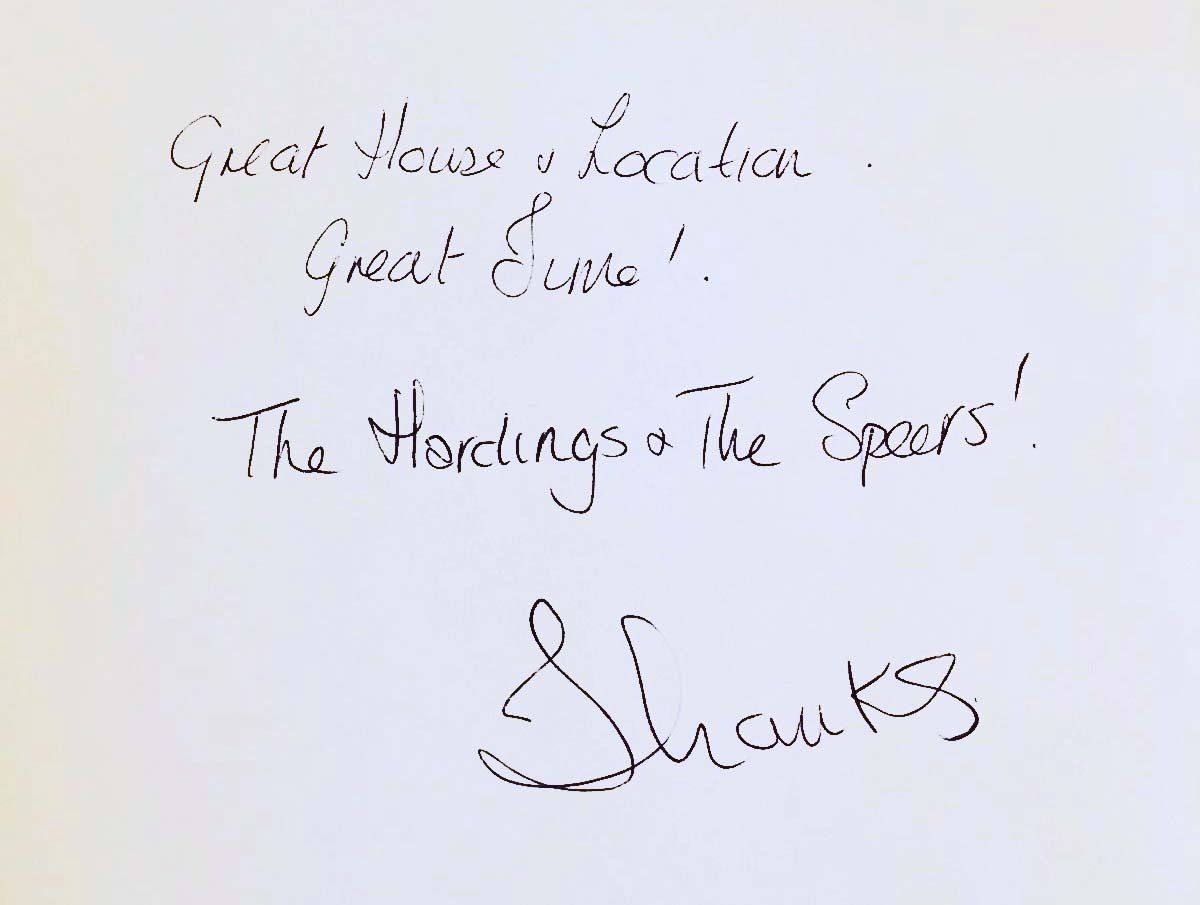 Great House & Location.
Great Time!
The Hardings & The Speers!
Thanks